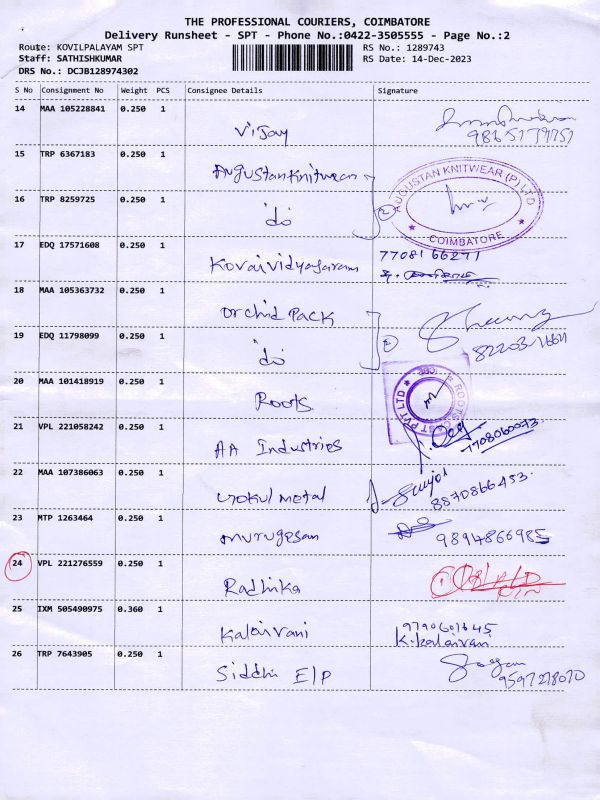 THE PROFESSIONAL COURIERS, COIMBATORE
Delivery Runsheet - SPT - Phone No.:0422-3505555 - Page No.:2
Route: KOVILPALAYAM SPT
RS No.: 1289743
Staff: SATHISHKUMAR
RS Date: 14-Dec-2023
DRS No.: DCJB128974302
S No Consignment No Weight PCS Consignee Details Signature
14 MAA 105228841 0.250 1
Vijay
15 TRP 6367183 0.250 1
Augustan Knitwear
AUGUSTAN KNITWEAR (P) LTD
★ COIMBATORE ★
16 TRP 8259725 0.250 1
do
2
17 EDQ 17571608 0.250 1
Kovai Vidyasaram
7708166271
18 MAA 105363732 0.250 1
Orchid Pack
19 EDQ 11798099 0.250 1
do
2
20 MAA 101418919 0.250 1
Roots
ROOTS
PVT LTD
21 VPL 221058242 0.250 1
AA Industries
7708060073
22 MAA 107386063 0.250 1
Gokul Metal
8870866453
23 MTP 1263464 0.250 1
Murugesan
9894866985
24 VPL 221276559 0.250 1
Radhika
25 IXM 505490975 0.360 1
Kalaivani
9790601645
K.Kalaivani
26 TRP 7643905 0.250 1
Siddhi E/P
9597278070